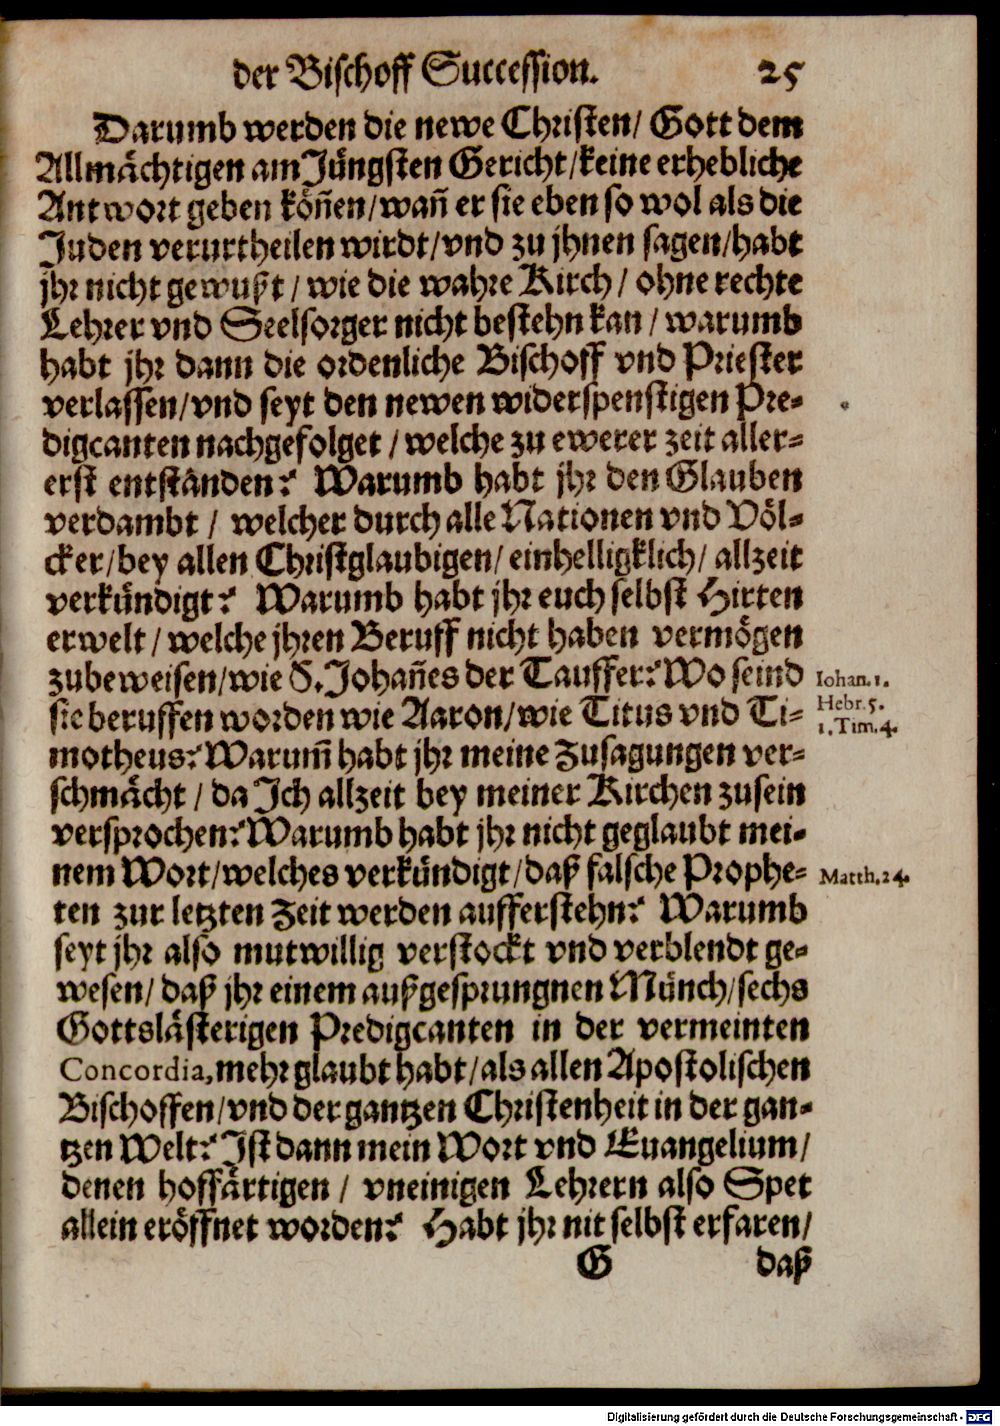 der Bischoff Succession. 25
Darumb werden die newe Christen/ Gott dem
Allmächtigen am Jüngsten Gericht/keine erhebliche
Antwort geben köñen/wañ er sie eben so wol als die
Juden verurtheilen wirdt/vnd zu jhnen sagen/habt
jhr nicht gewußt / wie die wahre Kirch / ohne rechte
Lehrer vnd Seelsorger nicht bestehn kan / warumb
habt jhr dann die ordenliche Bischoff vnd Priester
verlassen/vnd seyt den newen widerspenstigen Pre-
digcanten nachgefolget / welche zu ewerer zeit aller-
erst entständen? Warumb habt jhr den Glauben
verdambt / welcher durch alle Nationen vnd Völ-
cker/bey allen Christglaubigen/ einhelligklich/ allzeit
verkündigt? Warumb habt jhr euch selbst Hirten
erwelt / welche jhren Beruff nicht haben vermögen
zubeweisen/wie S. Johañes der Tauffer? Wo seind
Iohan. 1.
sie beruffen worden wie Aaron/wie Titus vnd Ti-
Hebr. 5.
1. Tim. 4.
motheus? Warum̃ habt jhr meine Zusagungen ver-
schmächt / da Ich allzeit bey meiner Kirchen zusein
versprochen? Warumb habt jhr nicht geglaubt mei-
nem Wort/welches verkündigt/daß falsche Prophe-
Matth. 24.
ten zur letzten Zeit werden aufferstehn? Warumb
seyt jhr also mutwillig verstockt vnd verblendt ge-
wesen/ daß jhr einem außgesprungnen Münch/sechs
Gottslästerigen Predigcanten in der vermeinten
Concordia, mehr glaubt habt/als allen Apostolischen
Bischoffen/vnd der gantzen Christenheit in der gan-
tzen Welt? Ist dann mein Wort vnd Euangelium/
denen hoffärtigen / vneinigen Lehrern also Spet
allein eröffnet worden? Habt jhr nit selbst erfaren/
G daß
Digitalisierung gefördert durch die Deutsche Forschungsgemeinschaft - DFG